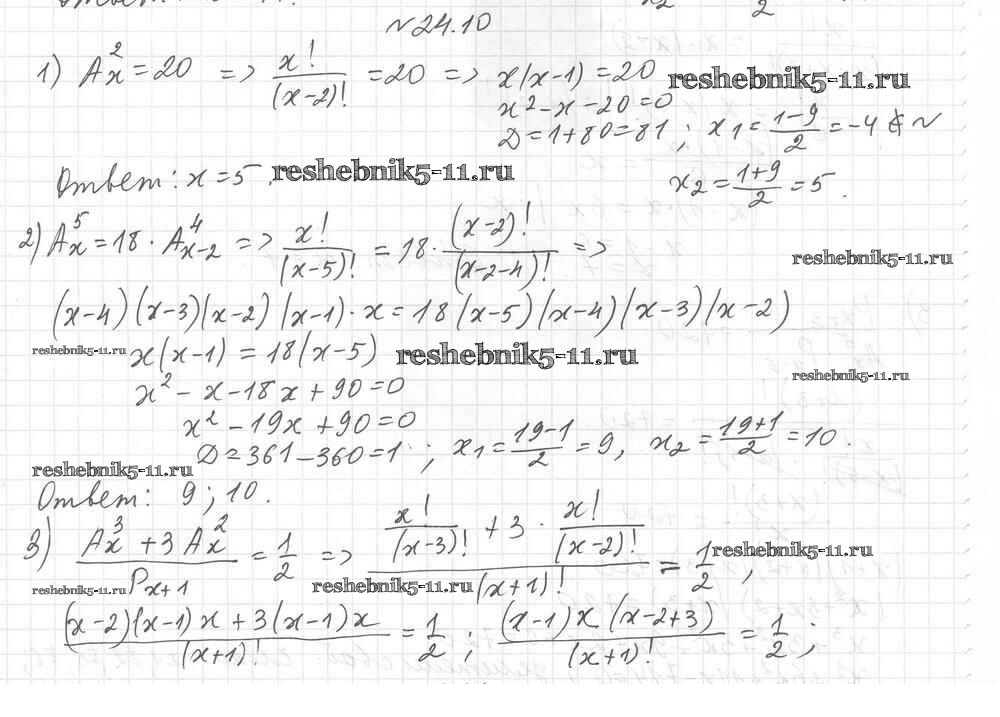 №24.10
1) Aₓ² = 20 => x!/(x-2)! = 20 => x(x-1) = 20 reshebnik5-11.ru
x² - x - 20 = 0
D = 1 + 80 = 81 ; x₁ = (1-9)/2 = -4 ∉ N
Ответ: x = 5. reshebnik5-11.ru x₂ = (1+9)/2 = 5.
2) Aₓ⁵ = 18 · Aₓ₋₂⁴ => x!/(x-5)! = 18 · (x-2)!/(x-2-4)! =>
reshebnik5-11.ru
(x-4)(x-3)(x-2)(x-1)·x = 18(x-5)(x-4)(x-3)(x-2)
reshebnik5-11.ru x(x-1) = 18(x-5) reshebnik5-11.ru
reshebnik5-11.ru
x² - x - 18x + 90 = 0
x² - 19x + 90 = 0
D = 361 - 360 = 1 ; x₁ = (19-1)/2 = 9, x₂ = (19+1)/2 = 10.
reshebnik5-11.ru
Ответ: 9 ; 10.
3) (Aₓ³ + 3Aₓ²)/Pₓ₊₁ = 1/2 => (x!/(x-3)! + 3 · x!/(x-2)!)/(x+1)! = 1/2 , reshebnik5-11.ru
reshebnik5-11.ru reshebnik5-11.ru
((x-2)(x-1)x + 3(x-1)x)/(x+1)! = 1/2 ; ((x-1)x(x-2+3))/(x+1)! = 1/2 ;